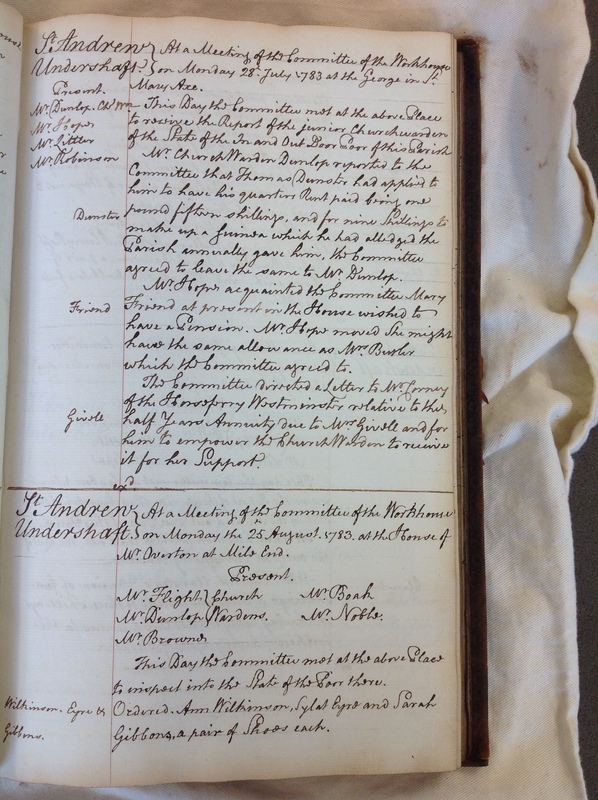 St. Andrew
Undershaft.
At a Meeting of the Committee of the Workhouse
on Monday 28th July 1783 at the George in St.
Mary Axe.
Present.
Mr. Dunlop. Ch Wn
Mr. Hope
Mr. Litter
Mr. Robinson
This Day the Committee met at the above Place
to receive the Report of the junior Churchwarden
of the State of the In and Out Door Poor of this Parish
Mr. Church Warden Dunlop reported to the
Committee that Thomas Dunster had applied to
him to have his quarters Rent paid being one
Dunster
pound fifteen shillings, and for nine Shillings to
make up a Guinea which he had alledged the
Parish annually gave him, the Committee
agreed to leave the same to Mr. Dunlop.
Mr. Hope acquainted the Committee Mary
Friend
Friend at present in the House wished to
have a Pension. Mr. Hope moved She might
have the same allowance as Mrs. Butler
which the Committee agreed to.
The Committee directed a Letter to Mr. Corney
of the Horseferry Westminster relative to the
Givelle
half Years Annuity due to Mrs. Givell and for
him to empower the Church Warden to receive
it for her Support.
exd.
St. Andrew
Undershaft.
At a Meeting of the Committee of the Workhouse
on Monday the 25th August 1783. at the House of
Mr. Overton at Mile End.
Present.
Mr. Flight Church Mr. Boak
Mr. Dunlop Wardens. Mr. Noble.
Mr. Browne
This Day the Committee met at the above Place
to inspect into the State of the Poor there.
Wilkinson. Eyre &
Gibbons.
Ordered. Ann Wilkinson, Sylat Eyre and Sarah
Gibbons, a pair of Shoes each.